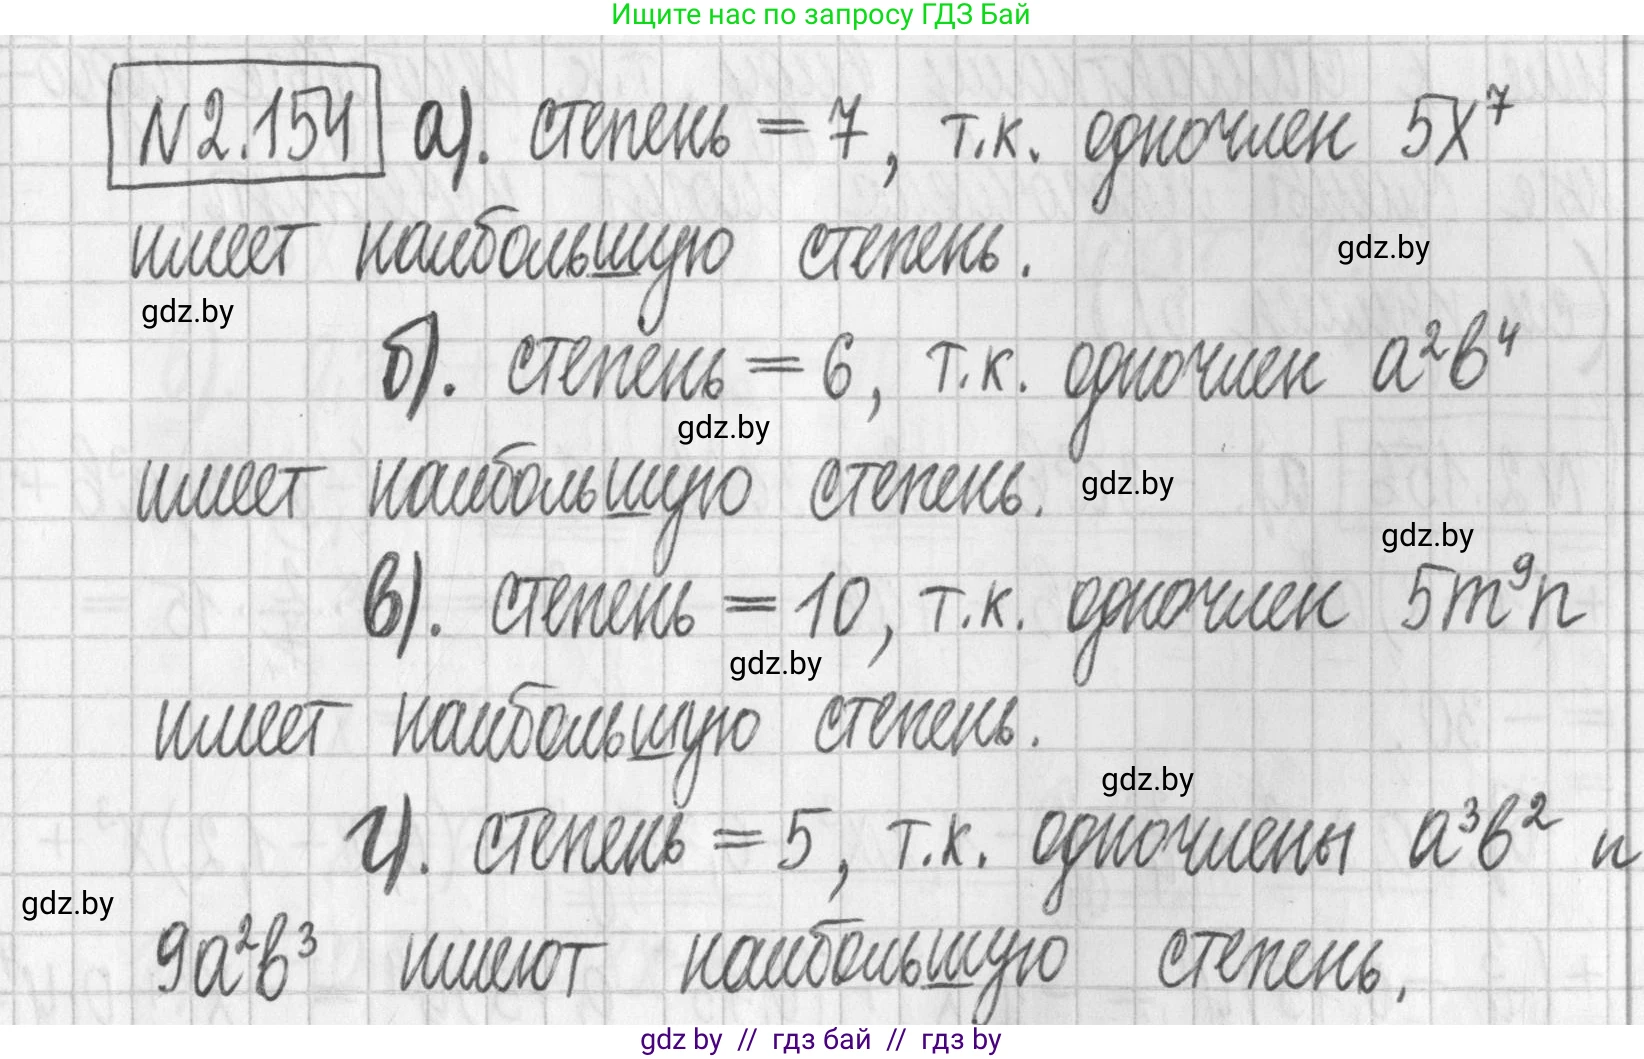 Ищите нас по запросу ГДЗ Бай
N2.154 а). степень = 7, т.к. одночлен 5x⁷
имеет наибольшую степень.
gdz.by
gdz.by
б). степень = 6, т.к. одночлен a²b⁴
gdz.by
имеет наибольшую степень.
gdz.by
gdz.by
в). степень = 10, т.к. одночлен 5m⁹n
gdz.by
имеет наибольшую степень.
gdz.by
г). степень = 5, т.к. одночлены a³b² и
gdz.by
9a²b³ имеют наибольшую степень.
gdz by // гдз бай // гдз by